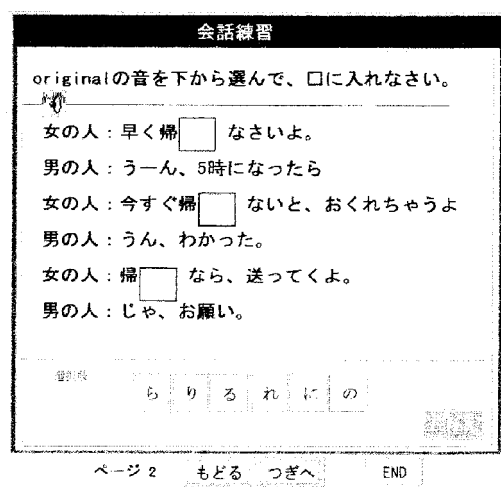 会話練習
originalの音を下から選んで、口に入れなさい。
女の人：早く帰□なさいよ。
男の人：うーん、5時になったら
女の人：今すぐ帰□ないと、おくれちゃうよ
男の人：うん、わかった。
女の人：帰□なら、送ってくよ。
男の人：じゃ、お願い。
らりるれにの
ページ 2 もどる つぎへ END